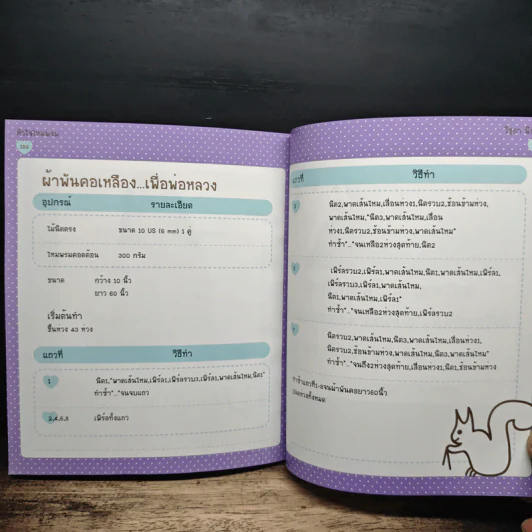 หัวใจไหมพรม
ผ้าพันคอเหลือง...เพื่อพ่อหลวง
อุปกรณ์ รายละเอียด
ไม้นิตตรง ขนาด 10 US (6 mm) 1 คู่
ไหมพรมคอตต้อน 300 กรัม
ขนาด กว้าง 10 นิ้ว
ยาว 60 นิ้ว
เริ่มต้นทำ
ขึ้นห่วง 43 ห่วง
แถวที่ วิธีทำ
1 นิต1,*พาดเส้นไหม,เพิร์ล1,เพิร์ลรวบ3,เพิร์ล1,พาดเส้นไหม,นิต1*
ทำซ้ำ*..*จนจบแถว
2,4,6,8 เพิร์ลทั้งแถว
วิชุดา
แถวที่ วิธีทำ
3 นิต2,พาดเส้นไหม,เลื่อนห่วง1,นิตรวบ2,ช้อนข้ามห่วง,
พาดเส้นไหม,*นิต3,พาดเส้นไหม,เลื่อน
ห่วง1,นิตรวบ2,ช้อนข้ามห่วง,พาดเส้นไหม*
ทำซ้ำ*..*จนเหลือ2ห่วงสุดท้าย,นิต2
5 เพิร์ลรวบ2,เพิร์ล1,พาดเส้นไหม,นิต1,พาดเส้นไหม,เพิร์ล1,
เพิร์ลรวบ3,เพิร์ล1,พาดเส้นไหม,
นิต1,พาดเส้นไหม,เพิร์ล1*
ทำซ้ำ*..*จนเหลือ2ห่วงสุดท้าย,เพิร์ลรวบ2
7 นิตรวบ2,พาดเส้นไหม,นิต3,พาดเส้นไหม,เลื่อนห่วง1,
นิตรวบ2,ช้อนข้ามห่วง,พาดเส้นไหม,นิต3,พาดเส้นไหม*
ทำซ้ำ*..*จนถึง2ห่วงสุดท้าย,เลื่อนห่วง1,นิต1,ช้อนข้ามห่วง
ทำซ้ำแถวที่1-8จนผ้าพันคอยาว60นิ้ว
ปลดห่วงทั้งหมด